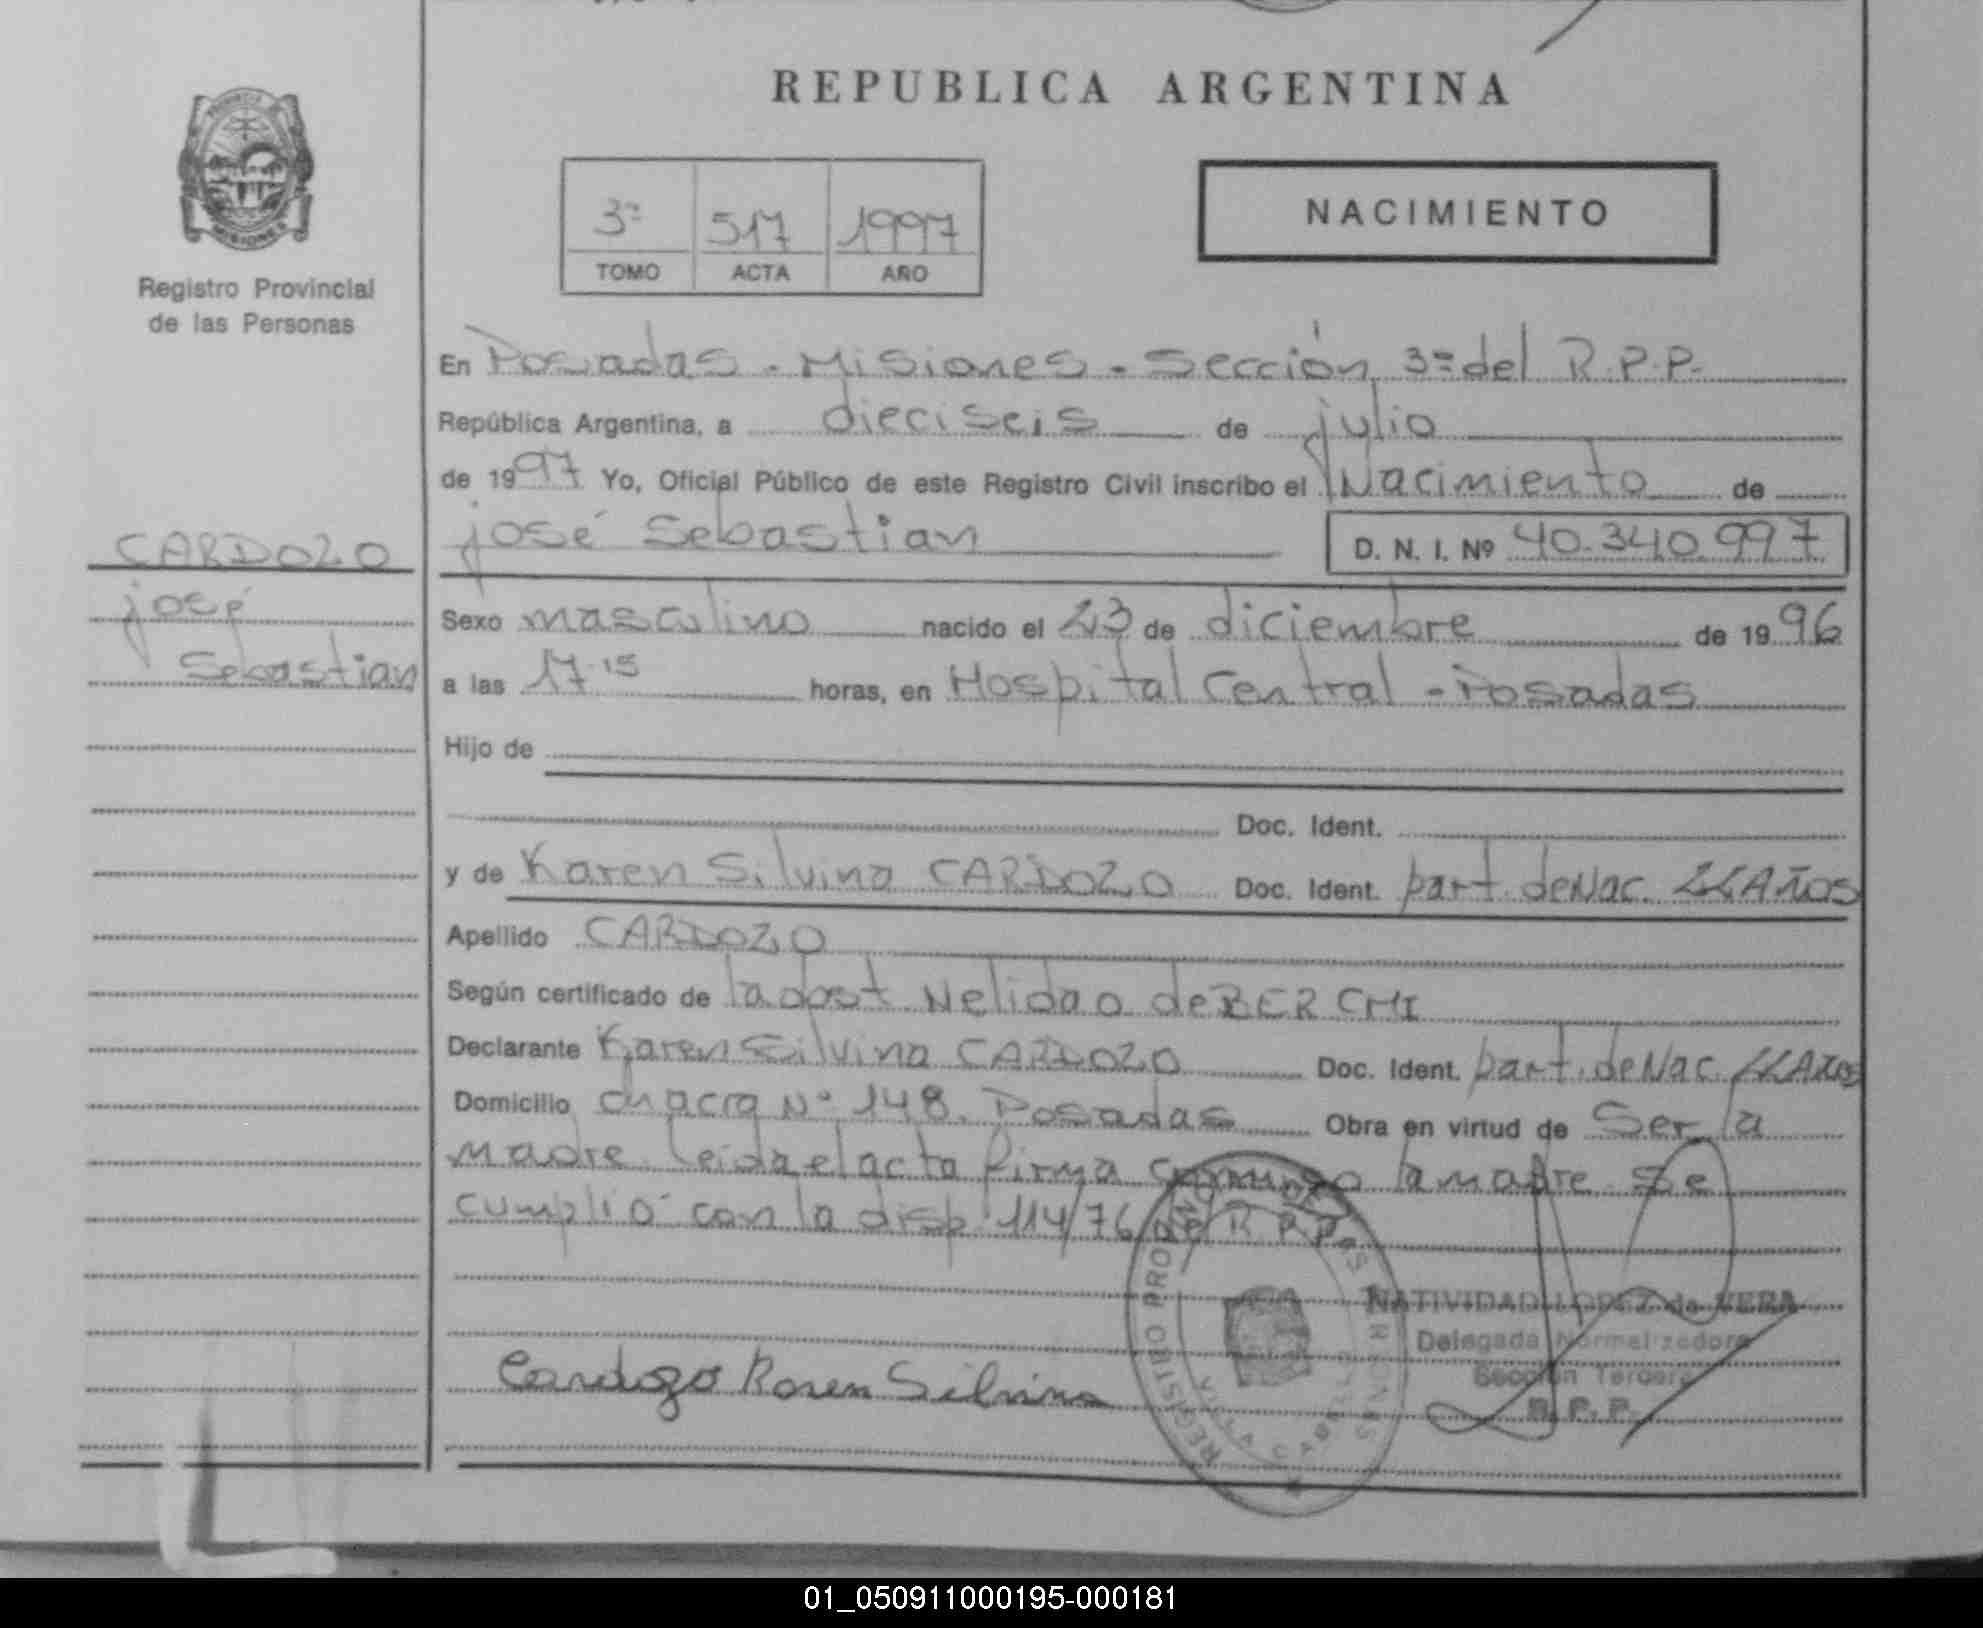 REPUBLICA ARGENTINA
PROVINCIA
MISIONES
Registro Provincial
de las Personas
3ª 517 1997
TOMO ACTA AÑO
NACIMIENTO
En Posadas - Misiones - Sección 3ª del R.P.P.
República Argentina, a dieciseis de julio
de 1997 Yo, Oficial Público de este Registro Civil inscribo el Nacimiento de
CARDOZO
José
Sebastian
José Sebastian D. N. I. Nº 40.340.997
Sexo masculino nacido el 23 de diciembre de 1996
a las 17.15 horas, en Hospital Central - Posadas
Hijo de
Doc. Ident.
y de Karen Silvina CARDOZO Doc. Ident. part. de Nac. AÑOS
Apellido CARDOZO
Según certificado de la obst Nelida O de BERCHI
Declarante Karen Silvina CARDOZO Doc. Ident. part. de Nac. AÑOS
Domicilio chacra Nº 148. Posadas Obra en virtud de Ser la
madre. Leida el acta firma conmigo la madre. Se
cumplió con la disp 114/76 R.P.P.
NATIVIDAD LOPEZ de VERA
Delegada Normalizadora
Sección Tercera
R. P. P.
Cardozo Karen Silvina
REGISTRO PROVINCIAL DE LAS PERSONAS
VILLA CABELLO
01_050911000195-000181